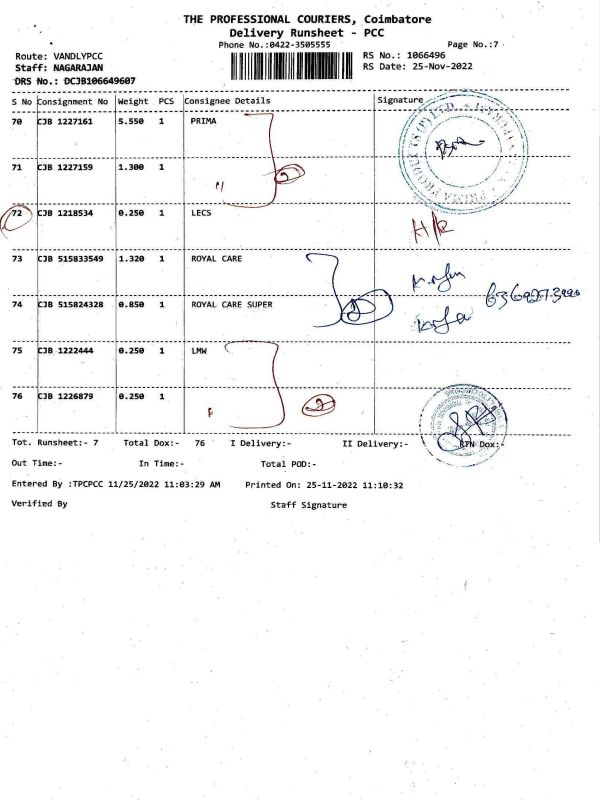 THE PROFESSIONAL COURIERS, Coimbatore
Delivery Runsheet - PCC
Phone No.:0422-3505555 Page No.:7
Route: VANDLYPCC RS No.: 1066496
Staff: NAGARAJAN RS Date: 25-Nov-2022
DRS No.: DCJB106649607
S No Consignment No Weight PCS Consignee Details Signature
70 CJB 1227161 5.550 1 PRIMA
71 CJB 1227159 1.300 1
" 2
72 CJB 1218534 0.250 1 LECS
73 CJB 515833549 1.320 1 ROYAL CARE
74 CJB 515824328 0.850 1 ROYAL CARE SUPER
75 CJB 1222444 0.250 1 LMW
76 CJB 1226879 0.250 1
2
Tot. Runsheet:- 7 Total Dox:- 76 I Delivery:- II Delivery:- RTN Dox:-
Out Time:- In Time:- Total POD:-
Entered By :TPCPCC 11/25/2022 11:03:29 AM Printed On: 25-11-2022 11:10:32
Verified By Staff Signature